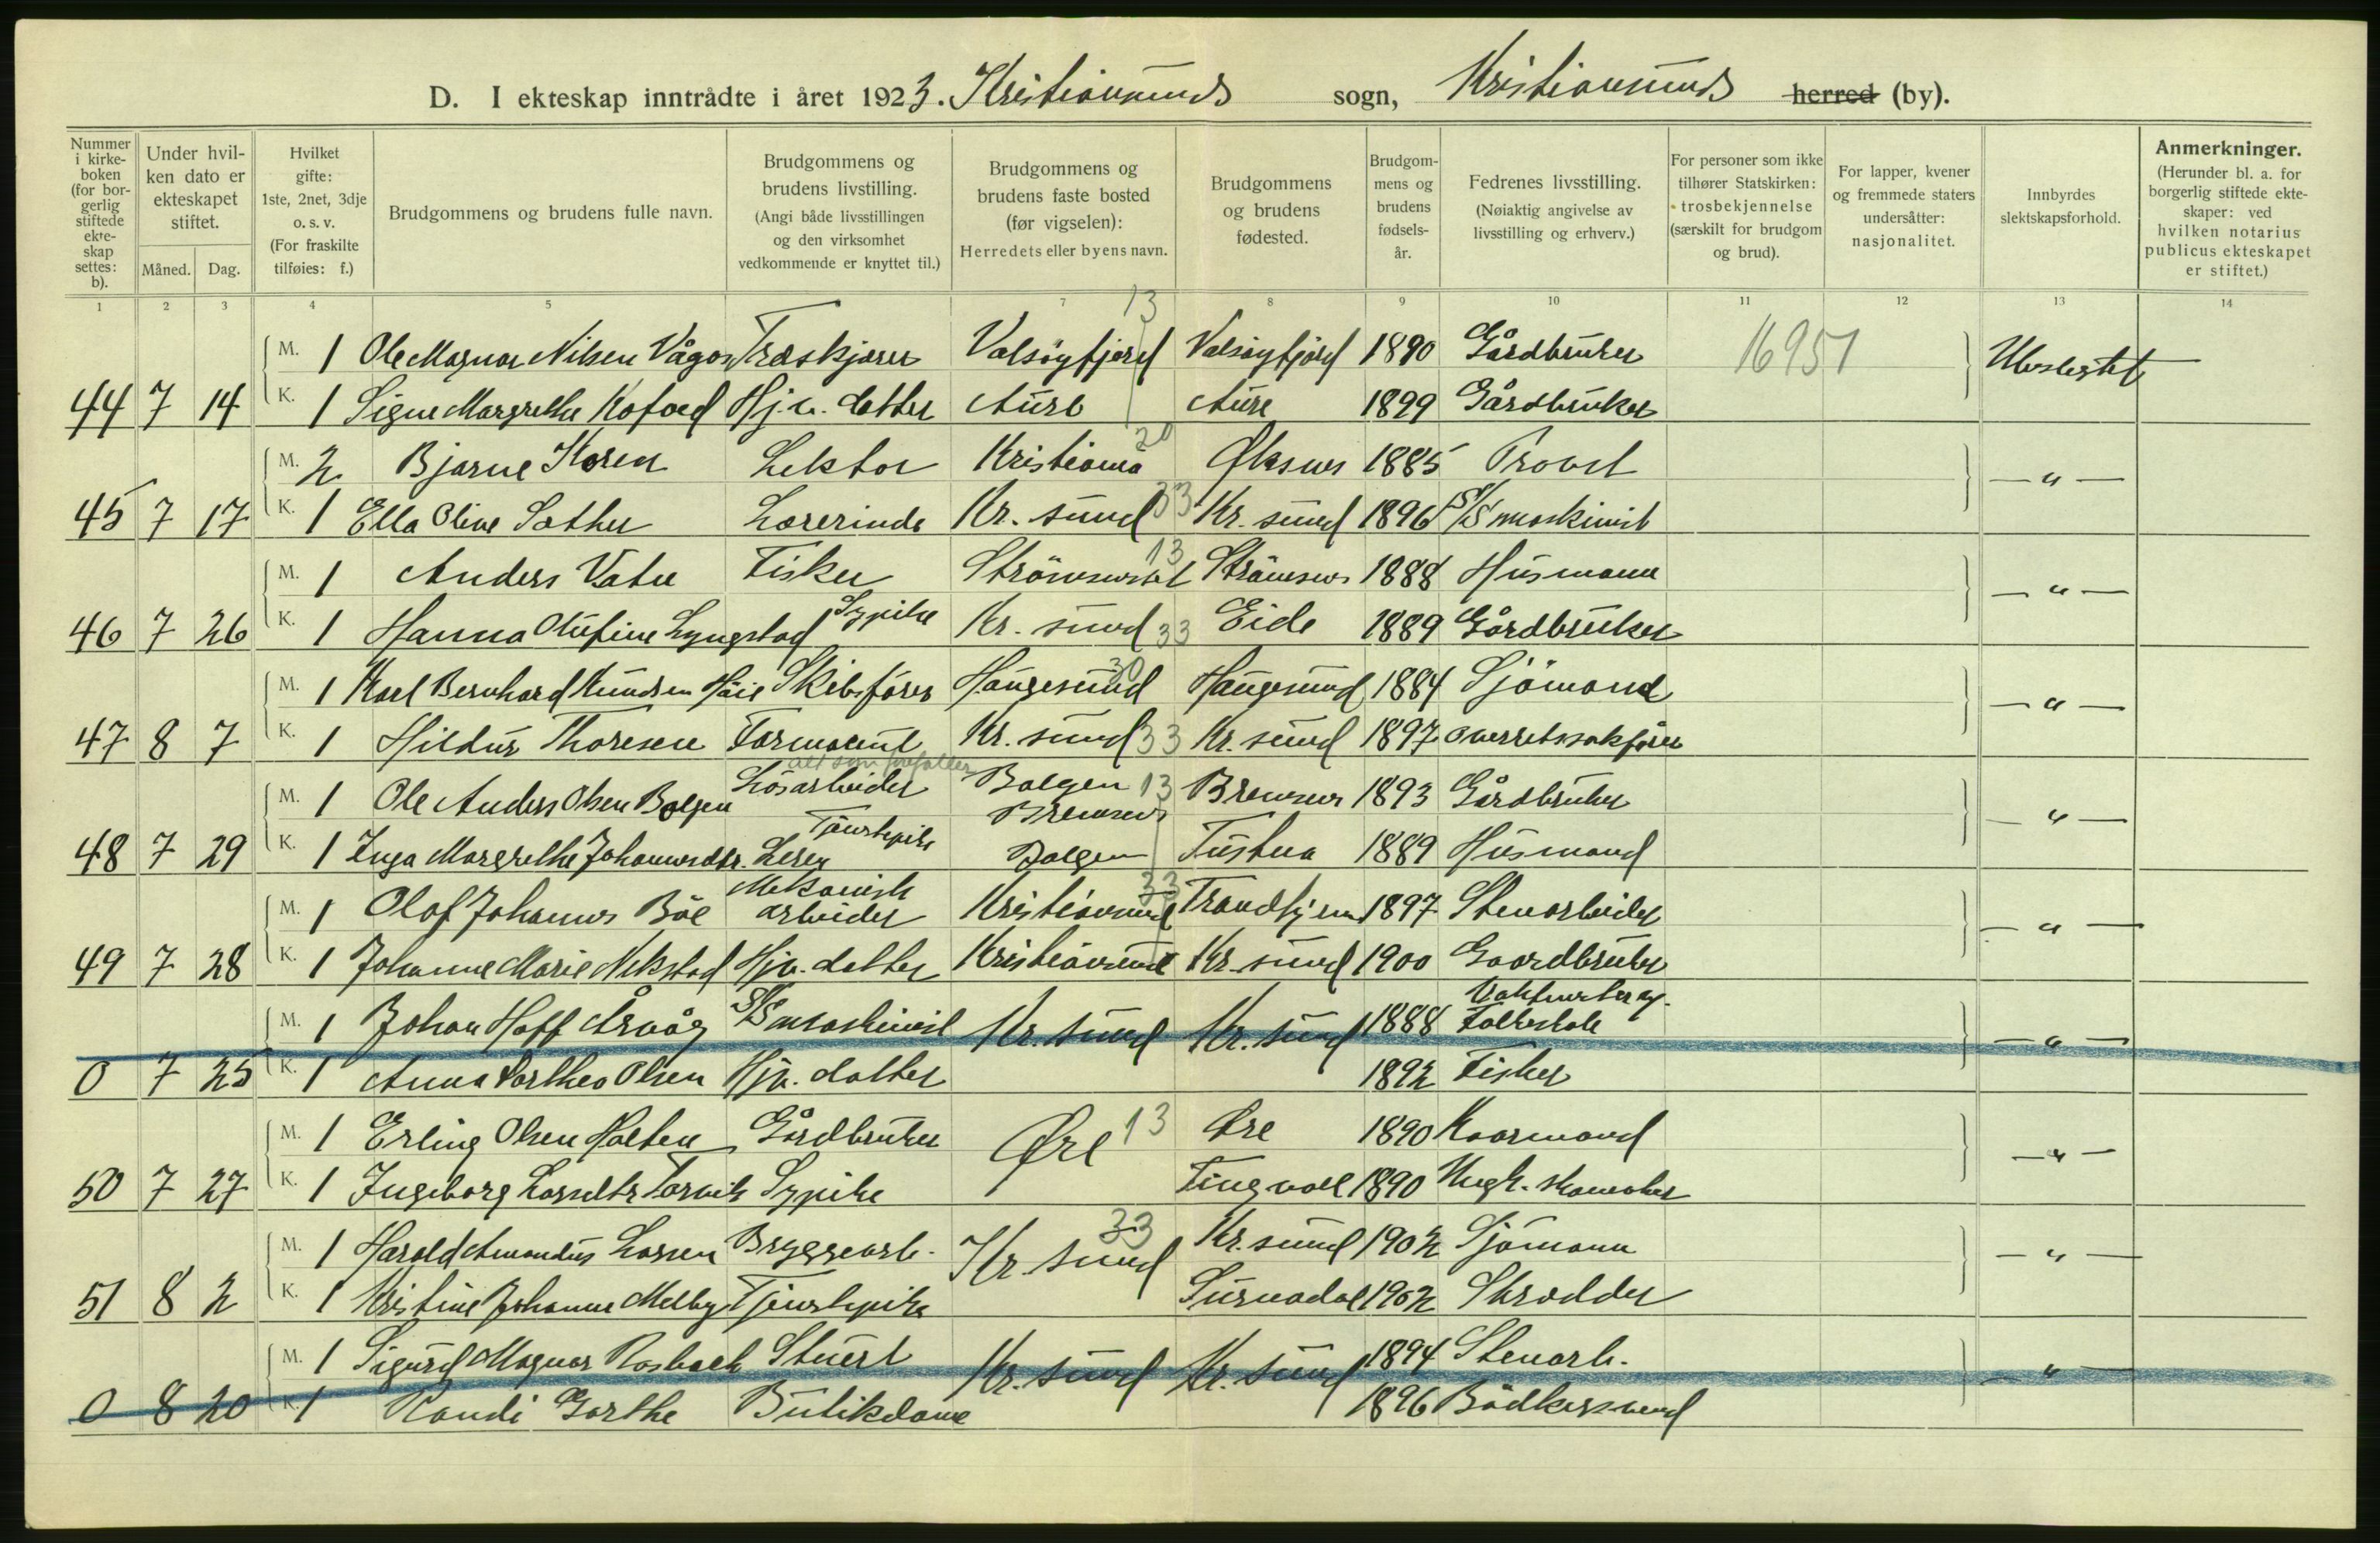 D. I ekteskap inntrådte i året 1923. Kristiansunds sogn, Kristiansunds herred (by).
Nummer i kirkeboken (for borgerlig stiftede ekteskap settes: b).
Under hvilken dato er ekteskapet stiftet.
Måned. Dag.
Hvilket gifte: 1ste, 2net, 3dje o. s. v. (For fraskilte tilføies: f.)
Brudgommens og brudens fulle navn.
Brudgommens og brudens livstilling. (Angi både livsstillingen og den virksomhet vedkommende er knyttet til.)
Brudgommens og brudens faste bosted (før vigselen): Herredets eller byens navn.
Brudgommens og brudens fødested.
Brudgommens og brudens fødselsår.
Fedrenes livsstilling. (Nøiaktig angivelse av livsstilling og erhverv.)
For personer som ikke tilhører Statskirken: trosbekjennelse (særskilt for brudgom og brud).
For lapper, kvener og fremmede staters undersåtter: nasjonalitet.
Innbyrdes slektskapsforhold.
Anmerkninger. (Herunder bl. a. for borgerlig stiftede ekteskaper: ved hvilken notarius publicus ekteskapet er stiftet.)
1 2 3 4 5 7 8 9 10 11 12 13 14
13
M. 1 Ole Magnar Nilsen Vågos Træskjærer Valsöyfjord Valsöyfjord 1890 Gårdbruker 16951 Ubeslegtet
44 7 14 K. 1 Signe Margrethe Kofoed Hj.v. datter Aure Aure 1899 Gårdbruker
M. 2 Bjarne Koren Lektor Kristiania 20 Øksnes 1885 Provst — " —
45 7 17 K. 1 Ella Oline Sæther Lærerinde Kr. sund 33 Kr. sund 1896 S/S maskinist
M. 1 Anders Vatn Fisker 13 Strömsnes 1888 Husmann — " —
46 7 26 K. 1 Hanna Olufine Lyngstad Sypike Kr. sund 33 Eide 1889 Gårdbruker
M. 1 Karl Bernhard Knudsen Høie Skibsfører Haugesund 30 Haugesund 1884 Sjömand — " —
47 8 7 K. 1 Hildur Thoresen Farmaceut Kr. sund 33 Kr. sund 1897 Overretssakfører
alt som forefaller
M. 1 Ole Anders Olsen Bolgen Lösarbeider Bolgen 13 Bremsnes Bremsnes 1893 Gårdbruker — " —
48 7 29 K. 1 Inga Margrethe Johannesdtr. Tjenestepike Bolgen Tustna 1889 Husmand
M. 1 Olaf Johannes Böe Mekanisk arbeider Kristiansund 33 Trondhjem 1897 Stenarbeider — " —
49 7 28 K. 1 Johanne Marie Nekstad Hjv. datter Kristiansund Kr. sund 1900 Gaardbruker
M. 1 Johan Hoff Årvåg S/S maskinist Kr. sund Kr. sund 1888 Folkeskole — " —
0 7 25 K. 1 Anna Dorthea Olsen Hjv. datter 1892 Fisker
M. 1 Erling Olsen Holten Gårdbruker Øre 13 Øre 1890 Kaarmand — " —
50 7 27 K. 1 Ingeborg Larsdtr Torvik Sypike Tingvoll 1890 Ungk. skomaker
M. 1 Harald Amandus Larsen Bryggearb. Kr. sund 33 Kr. sund 1902 Sjömann — " —
51 8 2 K. 1 Kristine Johanne Melby Tjenestepike Surnadal 1902 Skrædder
M. 1 Sigurd Magnar Rosbach Stuert Kr. sund Kr. sund 1894 Stenarb. — " —
0 8 20 K. 1 Randi Garthe Butikdame 1896 Bödkersvend